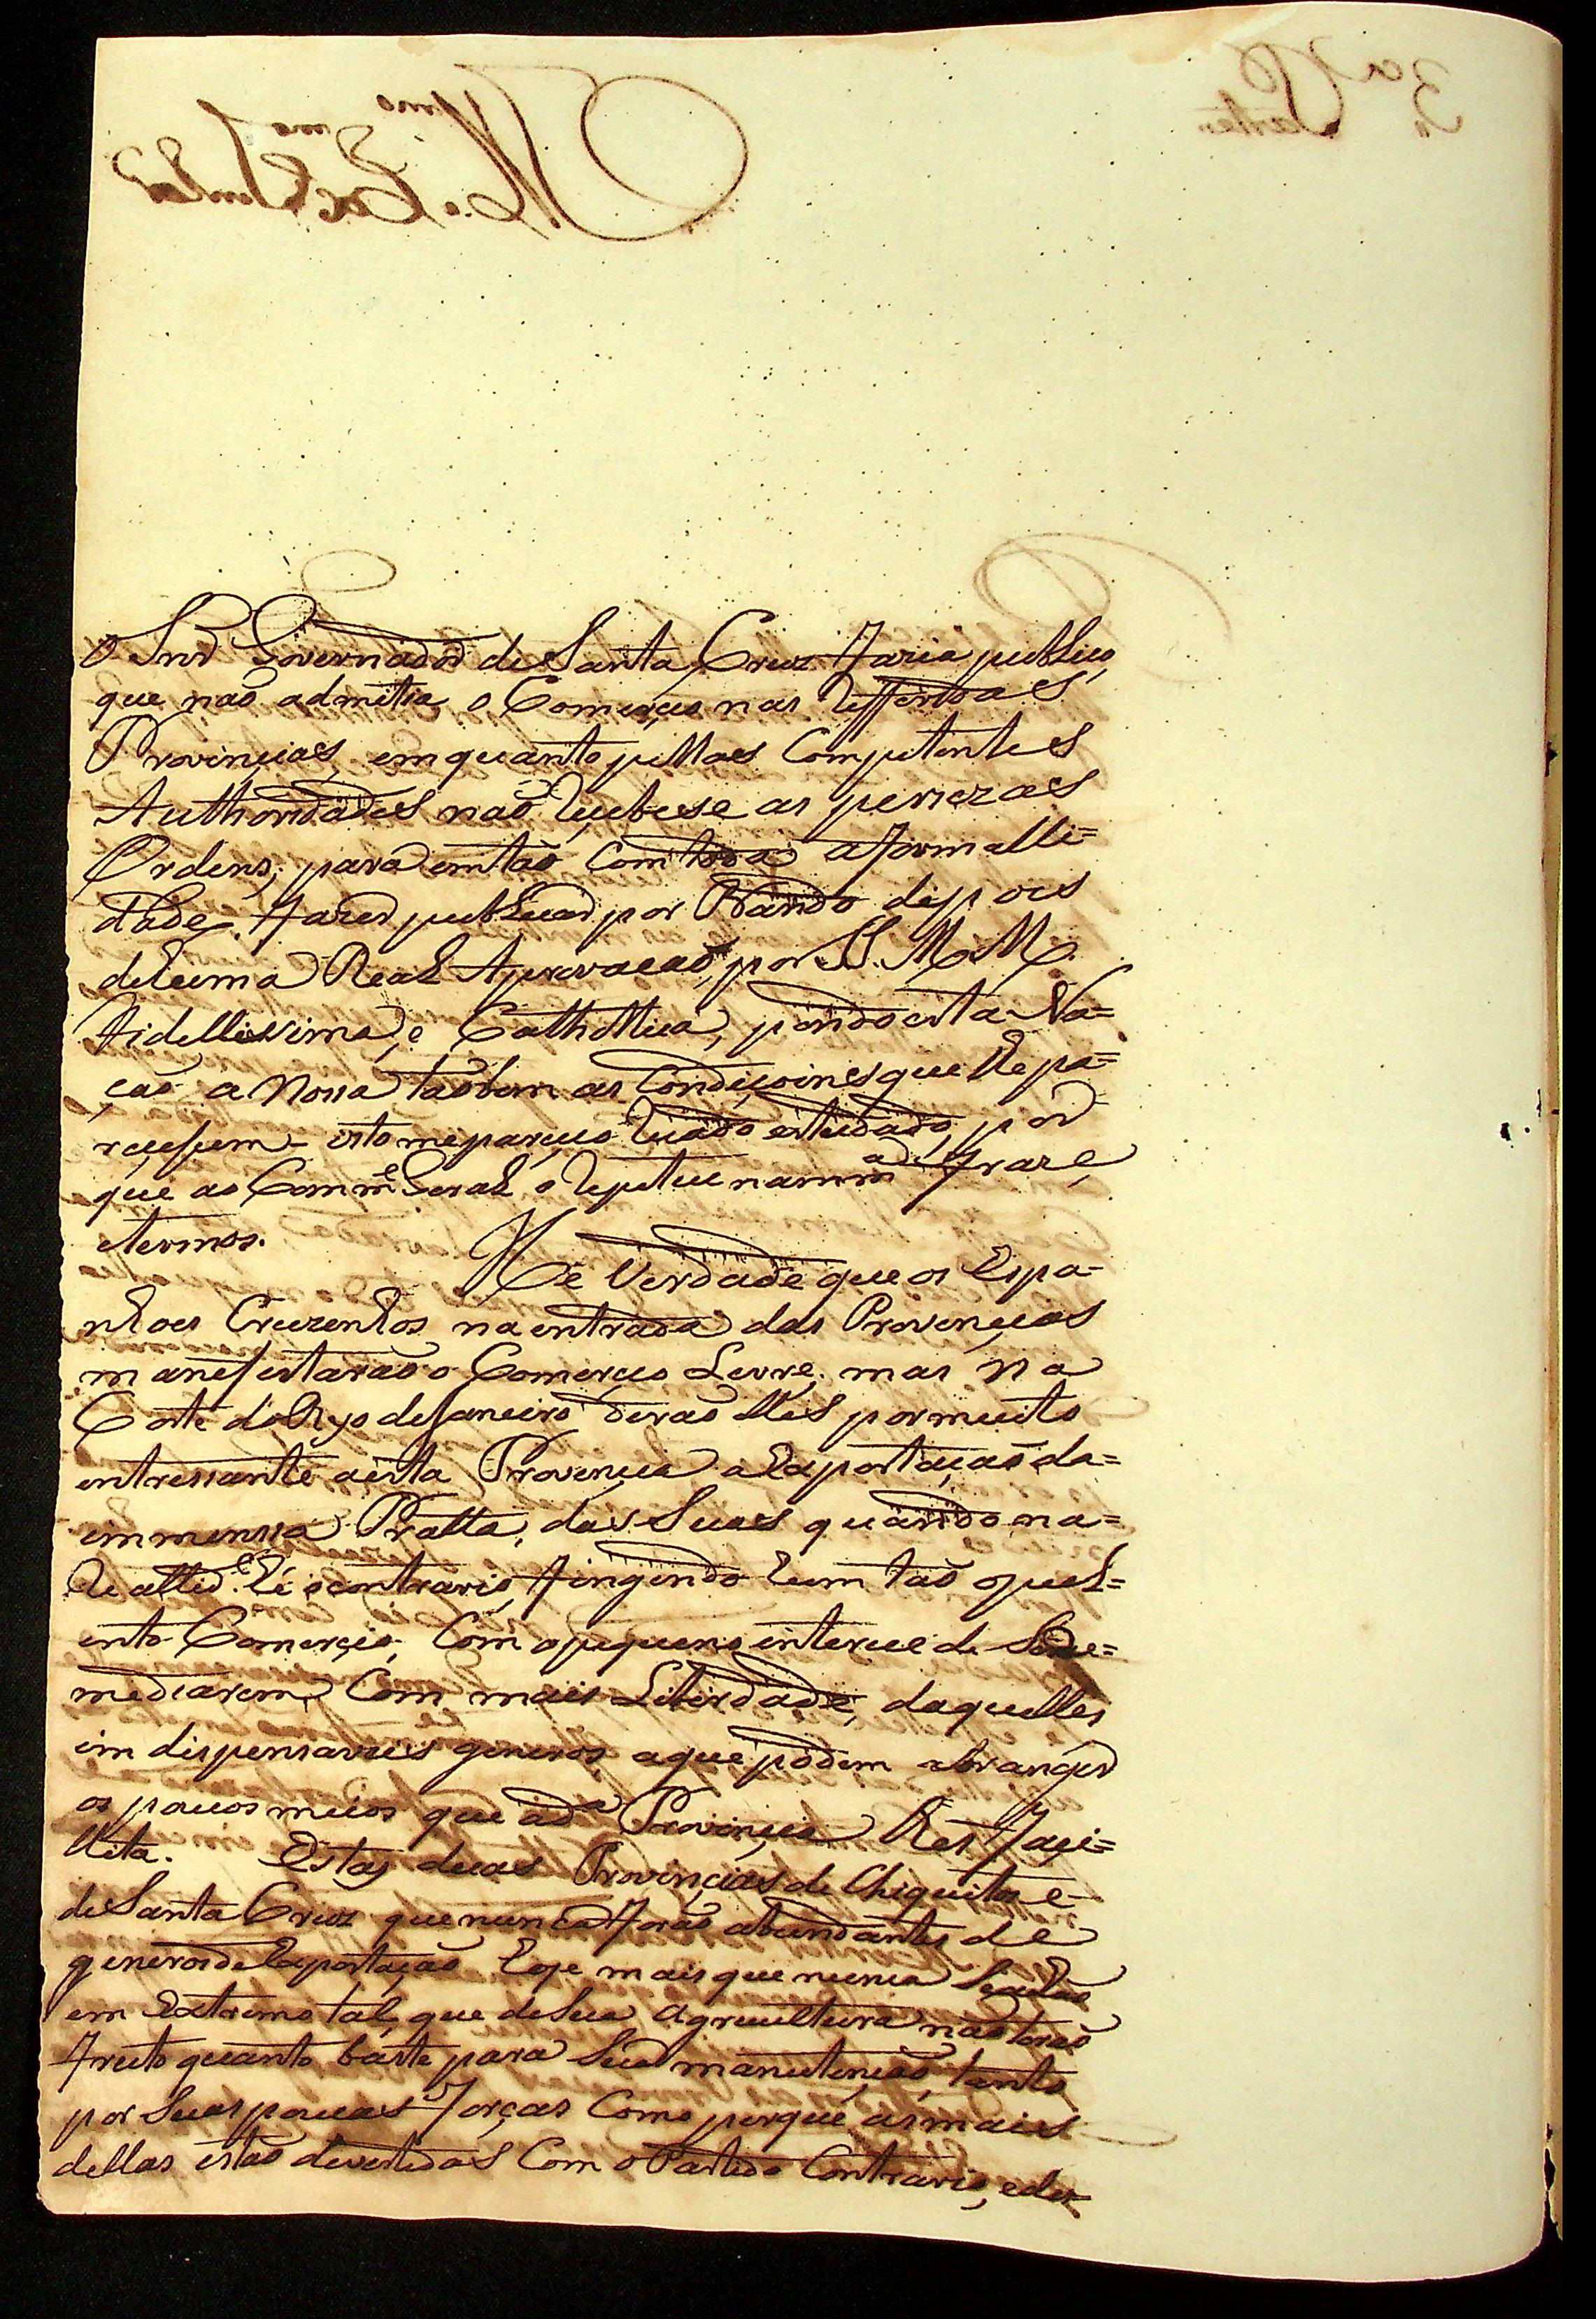 O Snr Governador de Santa Cruz Faria publico,
que naõ admetia o Comerçio nas Refferidas
Provinçias, em quanto pellas Competentes
Authoridades naõ houbese as perçizas
Ordens, para emtaõ Com toda a formalli=
dade fazer publicar por Bando depois
de huma Real Aprovacaõ, por S.S. M.M.
Fidellissima, e Cathollica, pondo esta Na=
çaõ a Nossa taõbem as Condiçoines que lhe pa=
reçesem - isto me pareçeo hado estudado, por
que ao Comm.e Geral o Repetiu na mm.a fraze,
e termos.
He Verdade que os Espa-
nhoes Cruzenhos na entrada das Provinçias
manefestaraõ o Comerçio Livre; mas na
Corte do Ryo de Janeiro deraõ elles por muito
entressante a esta Provinçia a Exportaçaõ da=
immensa Pratta, das Suas quando na=
Reallid.e hé o contrario, fingindo hum taõ opul=
ento Comerçio, Com o pequeno interece de Se Re=
mediarem Com mais Liberdade, daquelles
imdispensaveis generos a que podem abranger
os poucos meios que a d.a Provinçia lhes façi=
llita. Estas duas Provinçias de Chiquitos e-
de Santa Cruz que nunca foraõ abundantes de
generos de Exportaçaõ hoje mais que nunca
em Extremo tal, que de Sua Agricultura naõ tiraõ
fruto quanto baste para Sua manutençaõ, tanto
por Suas poucas forças Como porque as mais
dellas estaõ devertidas Com o Partido Contrario, e des-